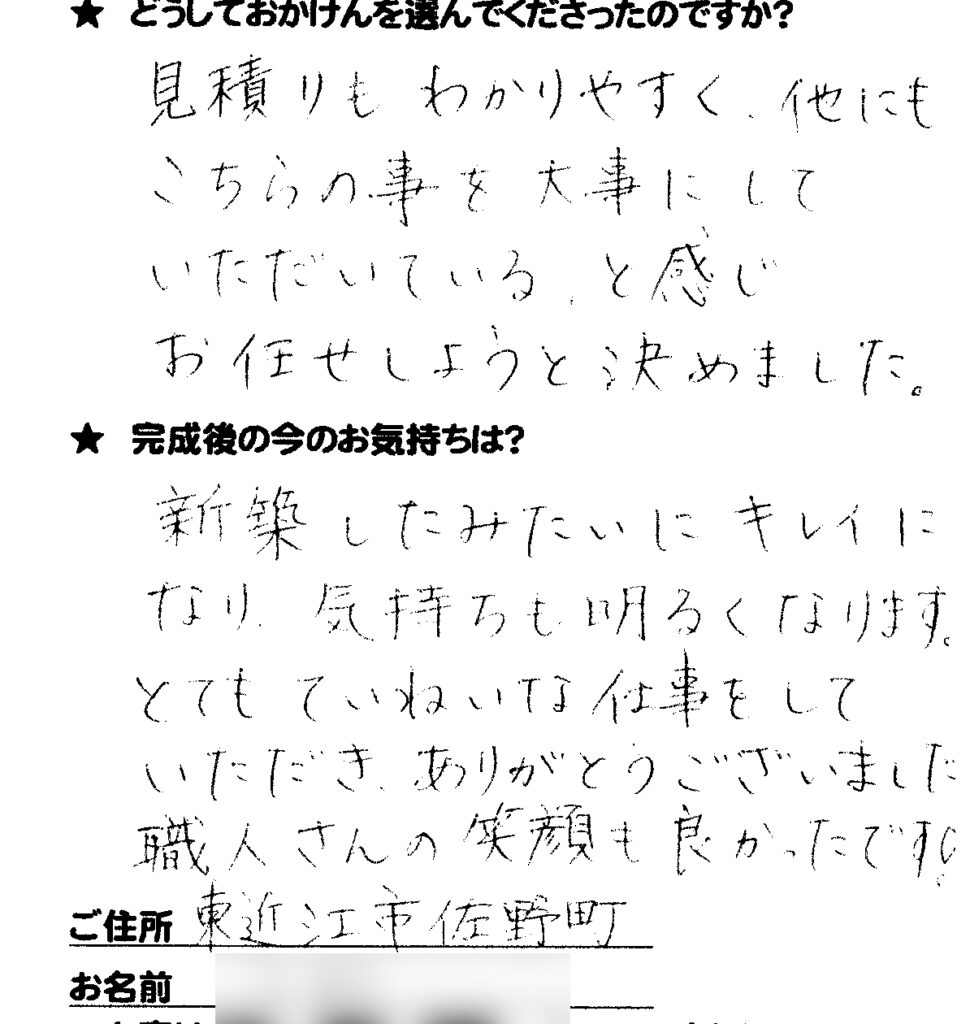 ★ どうしておかけんを選んでくださったのですか?
見積りも わかりやすく、他にも
こちらの事を 大事にして
いただいている、と感じ
お任せしようと決めました。
★ 完成後の今のお気持ちは?
新築したみたいに キレイに
なり、気持ちも明るくなります。
とても ていねいな 仕事をして
いただき、ありがとうございました
職人さんの 笑顔も良かったです。
ご住所 東近江市佐野町
お名前